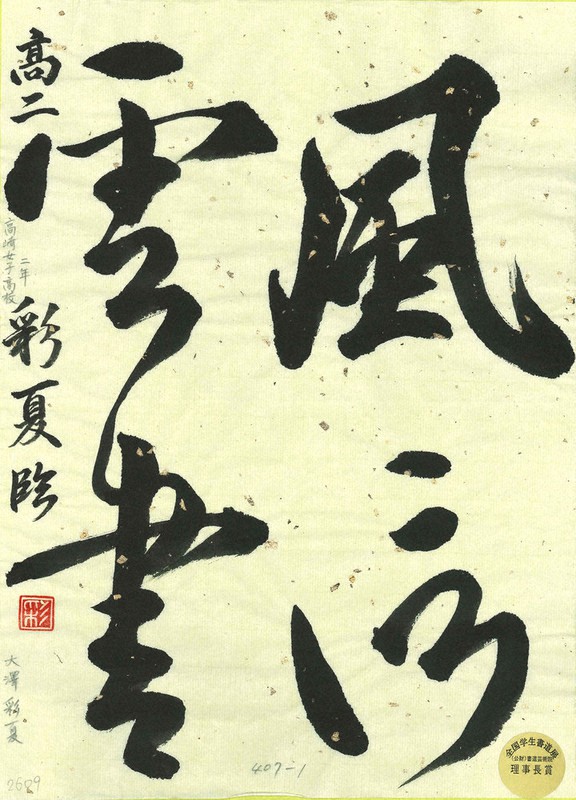 風信
雲書
高二 彩夏臨
二年
高崎女子高校
彩
大澤 彩夏
407-1
全国学生書道展
(公財)書道芸術院
理事長賞